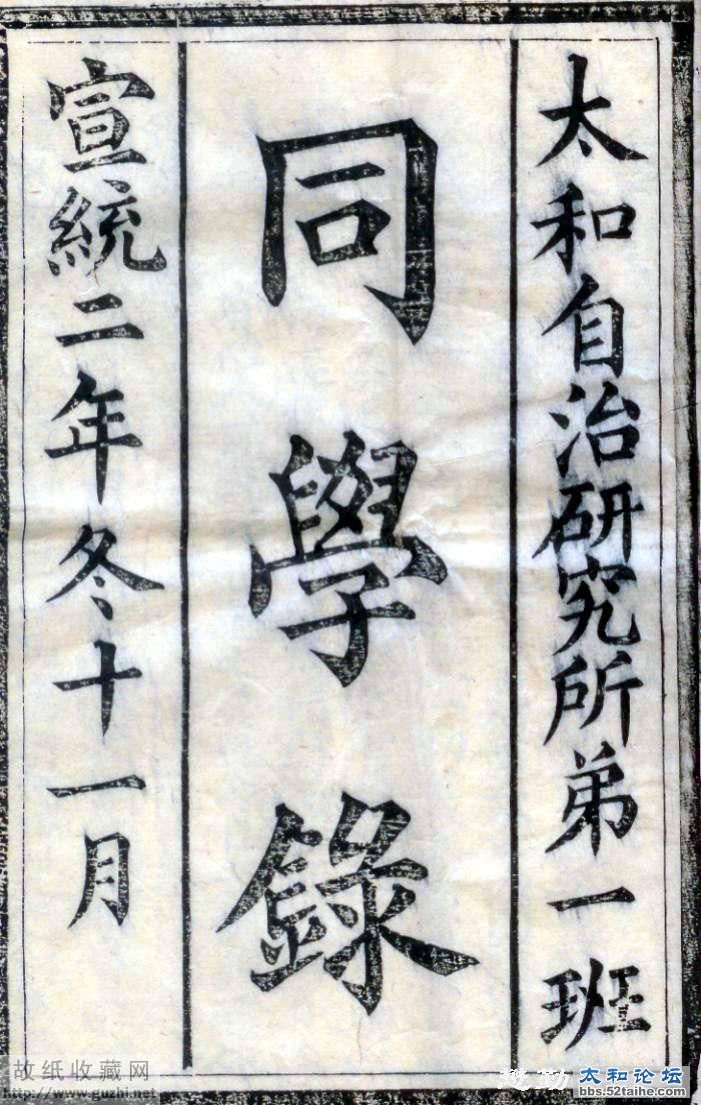 太和自治研究所弟一班
同學錄
宣統二年冬十一月
故纸收藏网
http://www.guzhi.net
太和论坛
bbs.52taihe.com